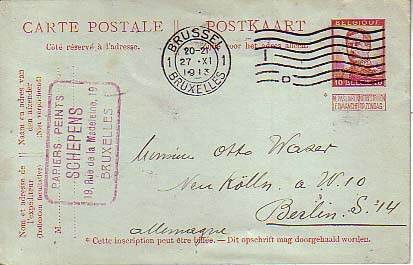 CARTE POSTALE || POSTKAART
Côté réservé à l'adresse. zijde voor het adres alleen
BRUSSEL
1 20-21 1
27 · XI
1913
BRUXELLES
BELGIQUE
10 BELGIË 10
NE PAS LIVRER LE DIMANCHE
Nom et adresse de l'expéditeur
(Indication facultative)
Naam en adres van den afzender
(Niet verplichtend)
M
PAPIERS PEINTS
SCHEPENS
19, Rue de la Madeleine, 19
BRUXELLES
Monsieur Otto Waser
Neu Kölln a W. 10
Berlin. S. 14
Allemagne
* Cette inscription peut être biffée. — Dit opschrift mag doorgehaald worden.